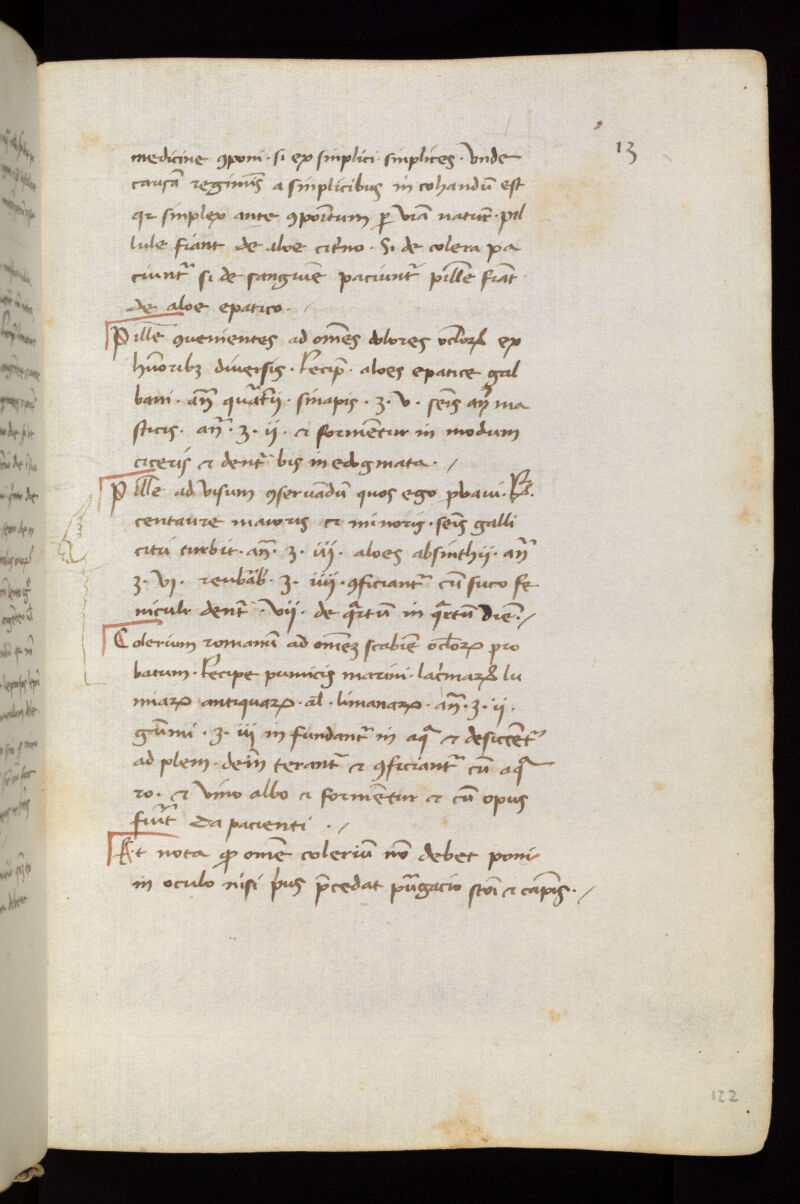 13
medicine ꝯponi · si ex sinplici sinplices · Vnde
causā regiminis a sinplicibus in cohandū est
qr sinplex ante ꝯpositum nature · pil
lule fiant de aloe citrino · Si de colera pa
ciunt̄ si de sanguine paciunt̄ pillle fiāt
de aloe epatico ·
Pillle ꝯuenientes ad om̄es dolores oclorꝝ ex
hūoribꝫ diuersis · Recip̄ · aloes epatice gal
bani · an̄ · sinapis · ʒ · v · sen̄s an̄ ma
sticis · an̄ · ʒ · ii · et formētur in modum
ciceris et dent̄ bis in edogmata ·
Pillle ad visum ꝯseruandū quos ego ꝓbaui · R ·
centaure maioris et minoris · sen̄s galli
citri turbit · an̄ · ʒ · iii · aloes absinthii · an̄
ʒ · vi · reubab̄ · ʒ · iiii · ꝯficiant̄ cū suco fe
niculi dent̄ · vii · de qrtū in qrtū diē ·
Colerium romanū ad om̄eꝫ scabiē oclorꝝ pro
batum · Recipe pumicis marini · lacrimarꝝ lu
miarꝝ antiquarꝝ · al · limanarꝝ · an̄ · ʒ · ii ·
gūmi · ʒ · iii infundant̄ in aq̄ et desiccent̄
ad plem · dein terant̄ et ꝯficiant̄ cū aq̄
ro · et vino albo et formētur et cū opus
fūit da pacienti ·
Et nota ꝙ om̄e coleriū nō debet poni
in oculo nisi p̄us p̄cedat purgacio stōi et capis ·
122